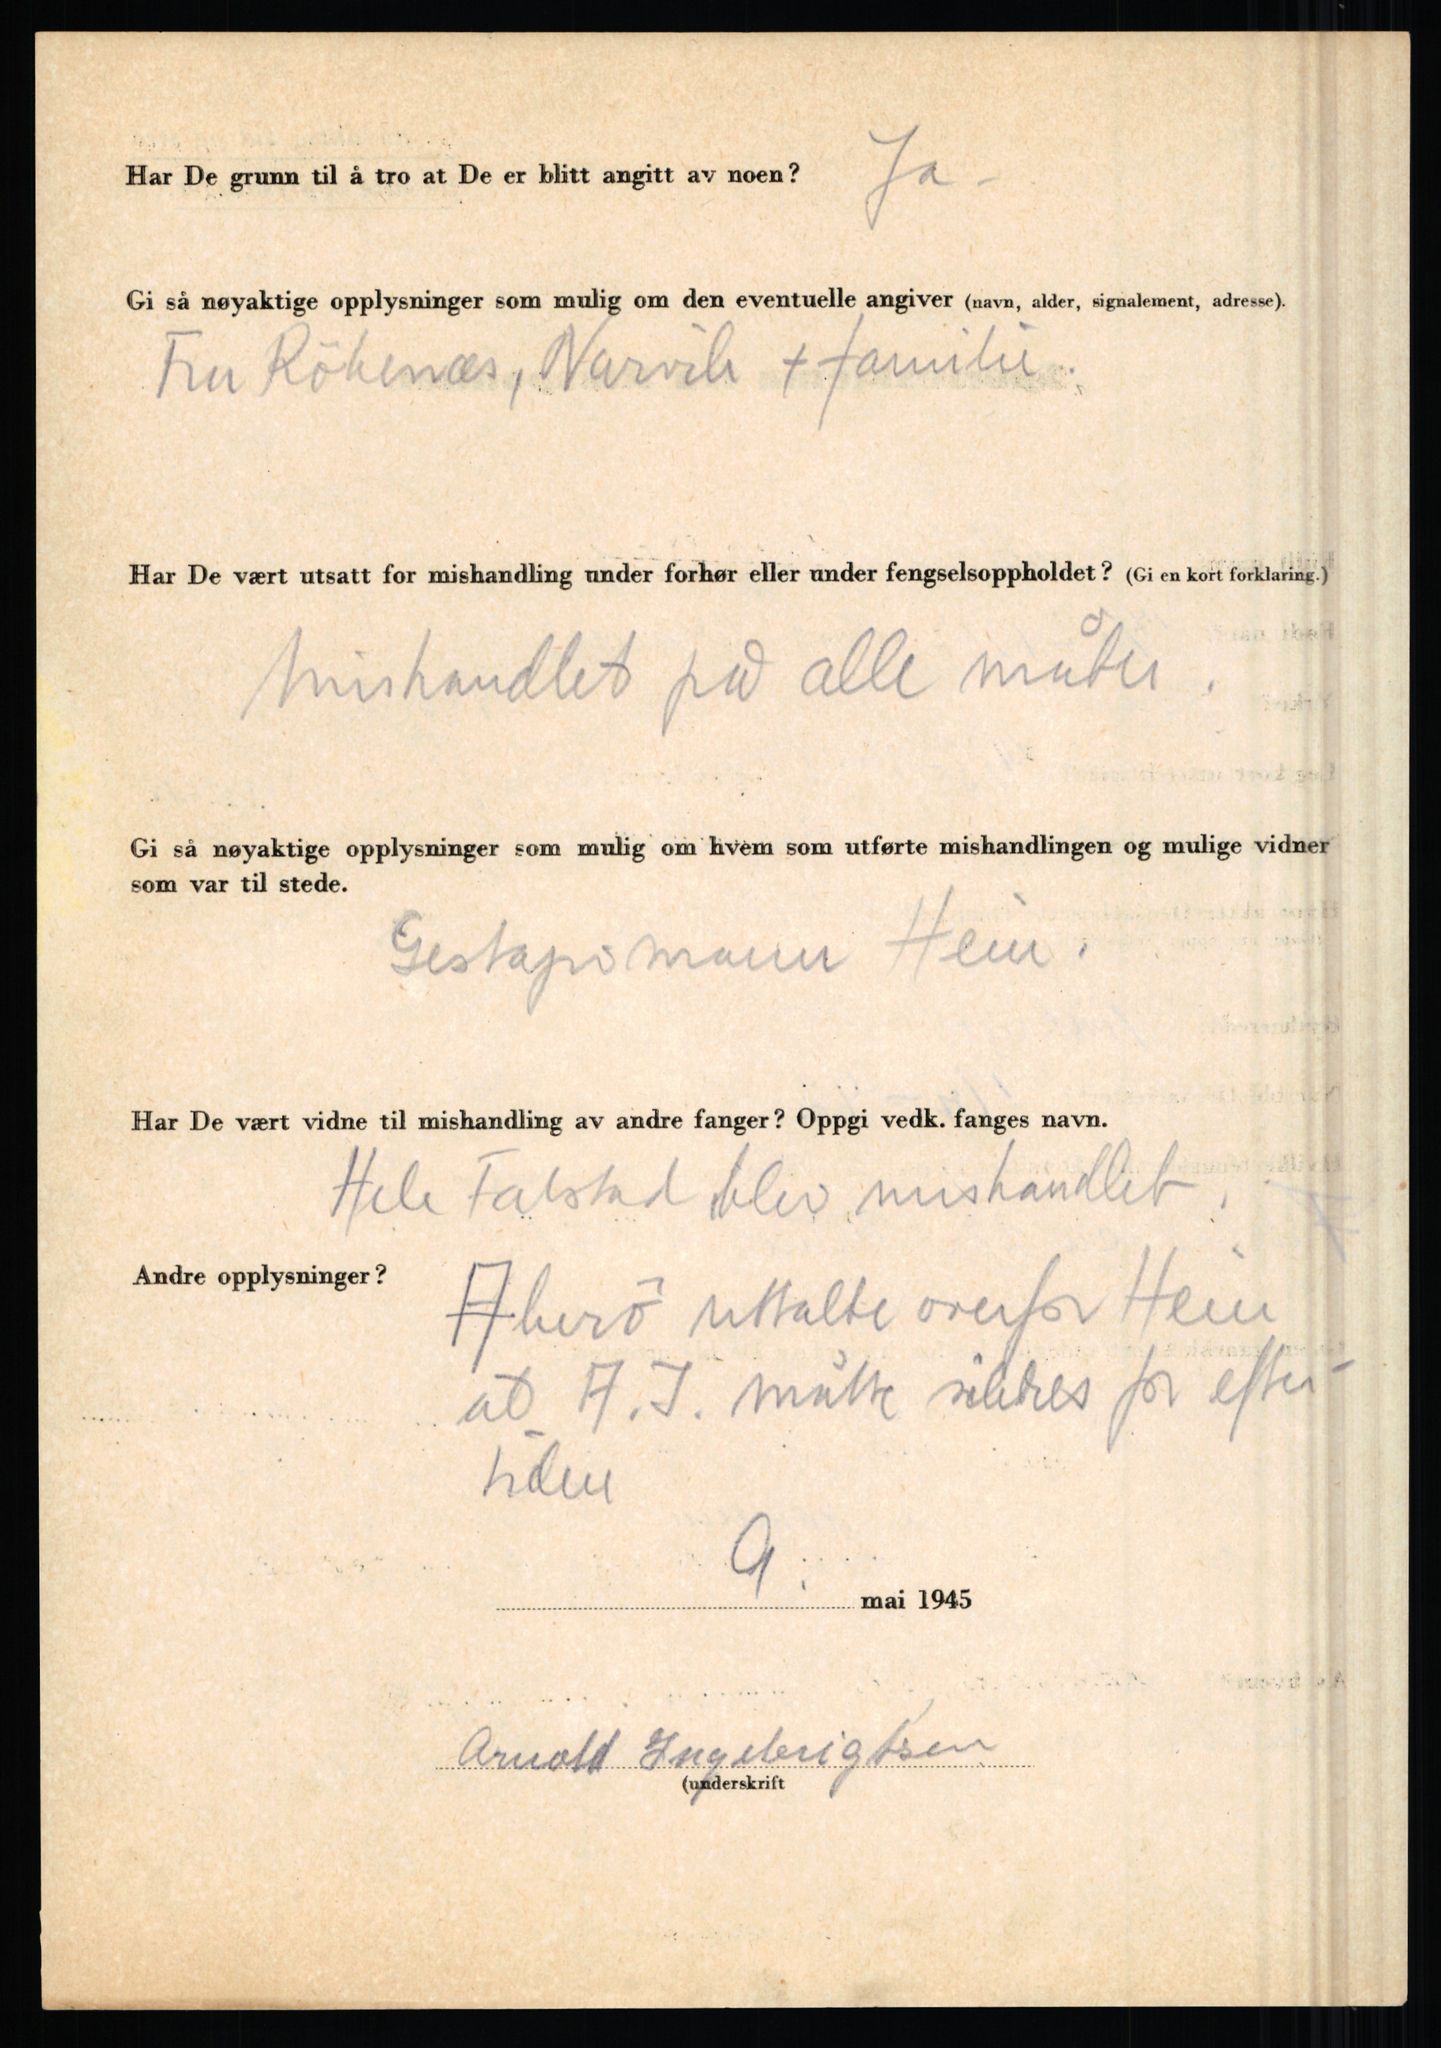 Har De grunn til å tro at De er blitt angitt av noen? Ja -
Gi så nøyaktige opplysninger som mulig om den eventuelle angiver (navn, alder, signalement, adresse).
Fru Rökenæs, Narvik + familie.
Har De vært utsatt for mishandling under forhør eller under fengselsoppholdet? (Gi en kort forklaring.)
Mishandlet på alle måter.
Gi så nøyaktige opplysninger som mulig om hvem som utførte mishandlingen og mulige vidner
som var til stede.
Gestapomann Hein.
Har De vært vidne til mishandling av andre fanger? Oppgi vedk. fanges navn.
Hele Falstad blev mishandlet.
Andre opplysninger? uttalte overfor Hein
at A. I. måtte for efter-
tiden
9. mai 1945
Arnold Ingebrigtsen
(underskrift